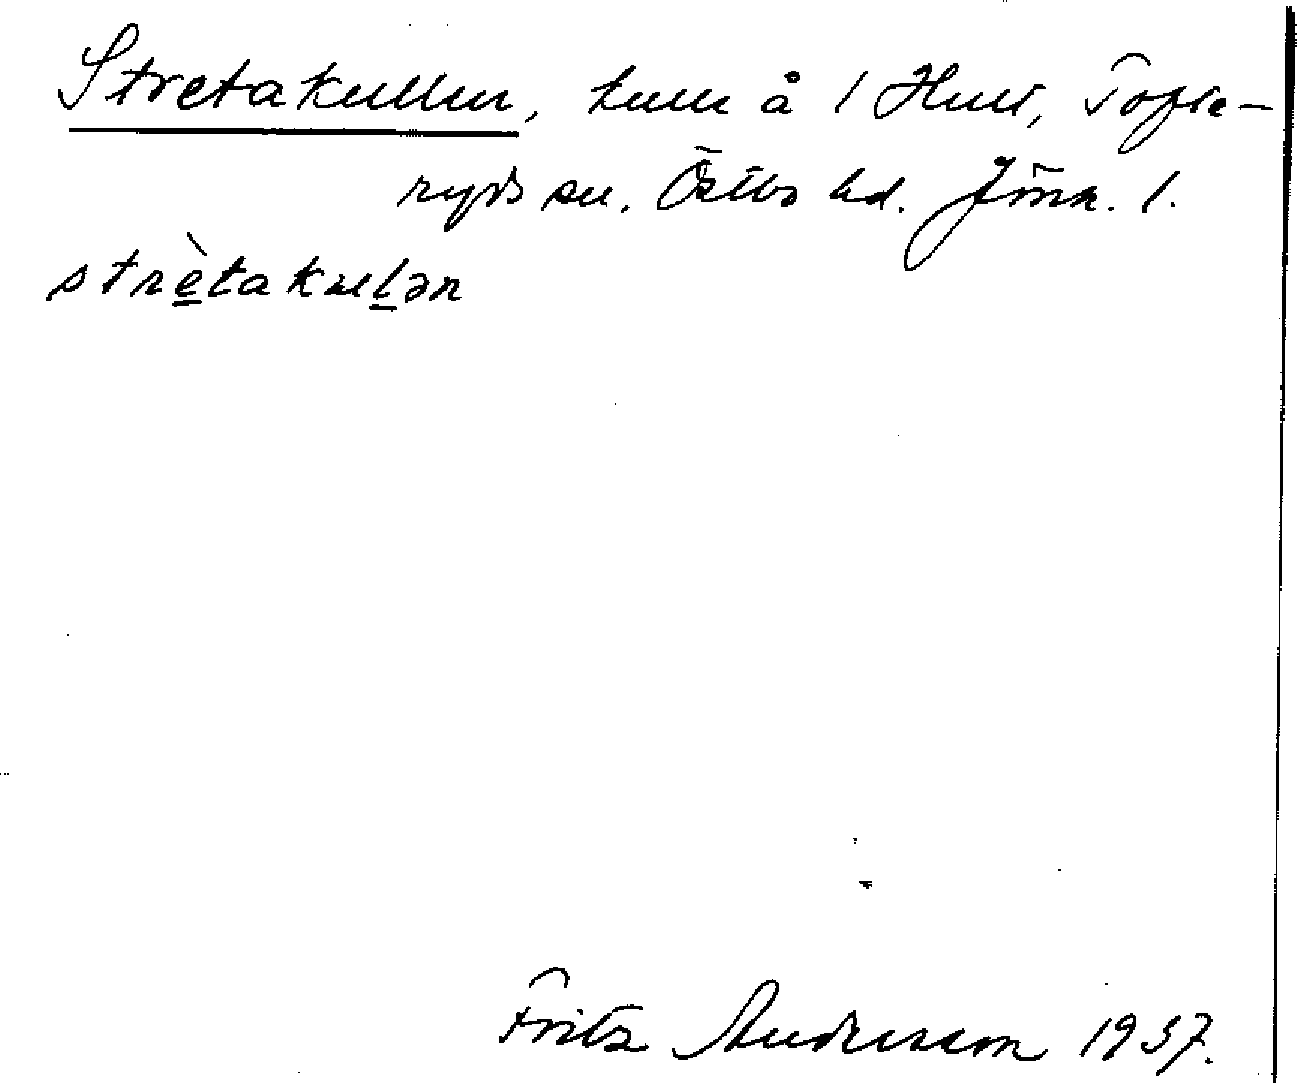 Stretakullen, kulle å 1 Hult, Tofte-
ryds sn. Östbo hd. Jönk. l.
strètakuḻən
Fritz Andersson 1937.